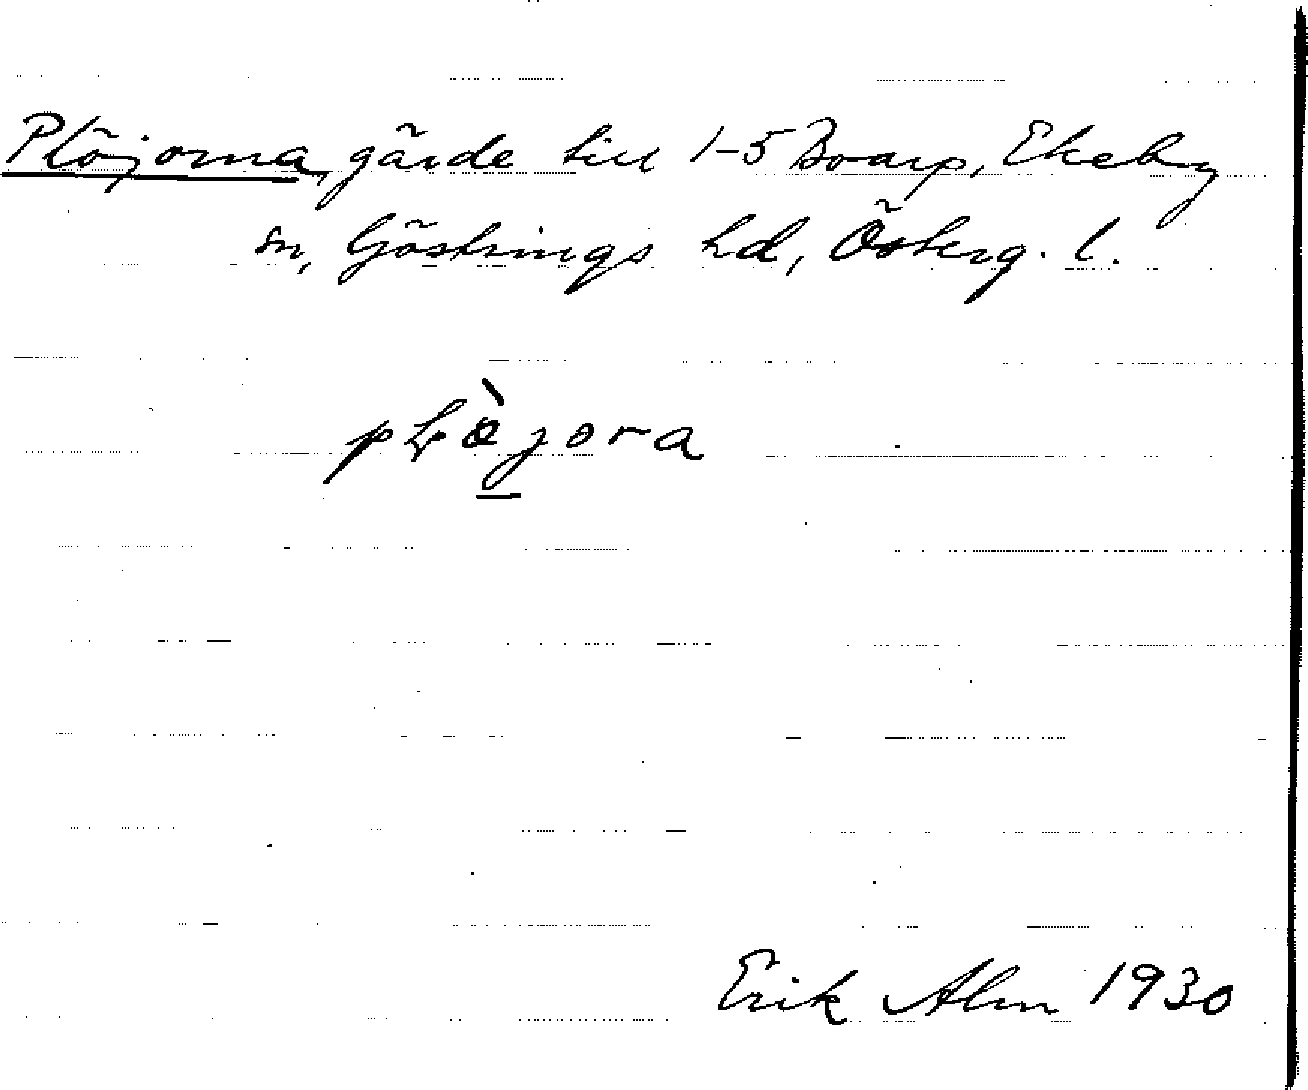 Plöjorna, gärde till 1-5 Boarp, Ekeby
sn, Göstrings hd, Österg. l.
plö̀jora
Erik Alm 1930